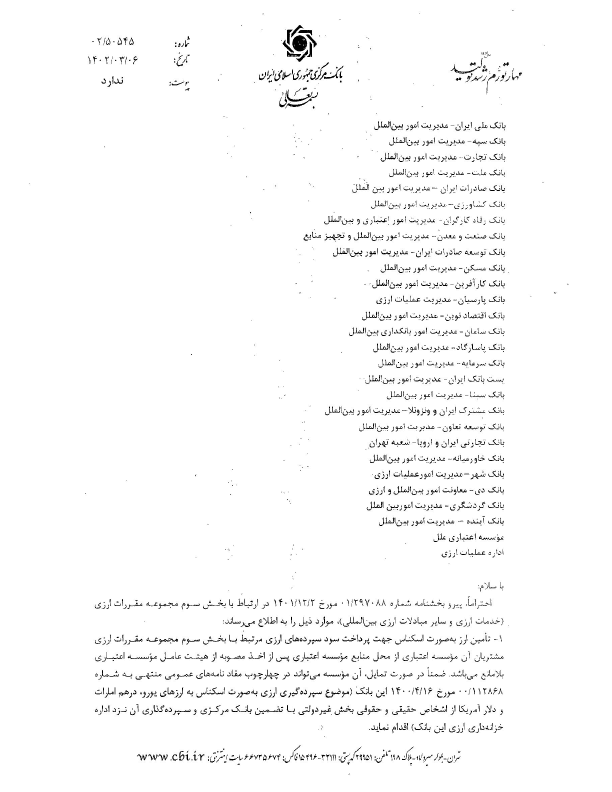 شماره: ۰۲/۵۰۵۴۵
تاریخ: ۱۴۰۲/۰۳/۰۶
پیوست: ندارد
بانک مرکزی جمهوری اسلامی ایران
بسمه تعالی
مهار تورم رشد تولید
بانک ملی ایران- مدیریت امور بین‌الملل
بانک سپه- مدیریت امور بین‌الملل
بانک تجارت- مدیریت امور بین‌الملل
بانک ملت- مدیریت امور بین‌الملل
بانک صادرات ایران – مدیریت امور بین الملل
بانک کشاورزی- مدیریت امور بین‌الملل
بانک رفاه کارگران- مدیریت امور اعتباری و بین‌الملل
بانک صنعت و معدن- مدیریت امور بین‌الملل و تجهیز منابع
بانک توسعه صادرات ایران- مدیریت امور بین‌الملل
بانک مسکن- مدیریت امور بین‌الملل
بانک کارآفرین- مدیریت امور بین‌الملل
بانک پارسیان- مدیریت عملیات ارزی
بانک اقتصاد نوین- مدیریت امور بین‌الملل
بانک سامان- مدیریت امور بانکداری بین‌الملل
بانک پاسارگاد- مدیریت امور بین‌الملل
بانک سرمایه- مدیریت امور بین‌الملل
پست بانک ایران- مدیریت امور بین‌الملل
بانک سینا- مدیریت امور بین‌الملل
بانک مشترک ایران و ونزوئلا- مدیریت امور بین‌الملل
بانک توسعه تعاون- مدیریت امور بین‌الملل
بانک تجارتی ایران و اروپا- شعبه تهران
بانک خاورمیانه- مدیریت امور بین‌الملل
بانک شهر- مدیریت امورعملیات ارزی
بانک دی- معاونت امور بین‌الملل و ارزی
بانک گردشگری- مدیریت اموربین الملل
بانک آینده – مدیریت امور بین‌الملل
مؤسسه اعتباری ملل
اداره عملیات ارزی
با سلام؛
احتراماً، پیرو بخشنامه شماره ۰۱/۲۹۷۰۸۸ مورخ ۱۴۰۱/۱۲/۲ در ارتباط با بخش سوم مجموعه مقررات ارزی
(خدمات ارزی و سایر مبادلات ارزی بین‌المللی)، موارد ذیل را به اطلاع می‌رساند:
۱- تأمین ارز به‌صورت اسکناس جهت پرداخت سود سپرده‌های ارزی مرتبط با بخش سوم مجموعه مقررات ارزی
مشتریان آن مؤسسه اعتباری از محل منابع مؤسسه اعتباری پس از اخذ مصوبه از هیئت عامل مؤسسه اعتباری
بلامانع می‌باشد. ضمناً در صورت تمایل، آن مؤسسه می‌تواند در چهارچوب مفاد نامه‌های عمومی منتهی به شماره
۰۰/۱۱۲۸۶۸ مورخ ۱۴۰۰/۴/۱۶ این بانک (موضوع سپرده‌گیری ارزی به‌صورت اسکناس به ارزهای یورو، درهم امارات
و دلار آمریکا از اشخاص حقیقی و حقوقی بخش غیردولتی با تضمین بانک مرکزی و سپرده‌گذاری آن نزد اداره
خزانه‌داری ارزی این بانک) اقدام نماید.
تهران- بلوار میرداماد- پلاک ۱۹۸ تلفن: ۲۹۹۵۱ کد پستی: ۳۳۱۱۱-۱۵۴۹۶ فاکس: ۶۶۷۳۵۶۷۴ سایت اینترنتی: www.cbi.ir